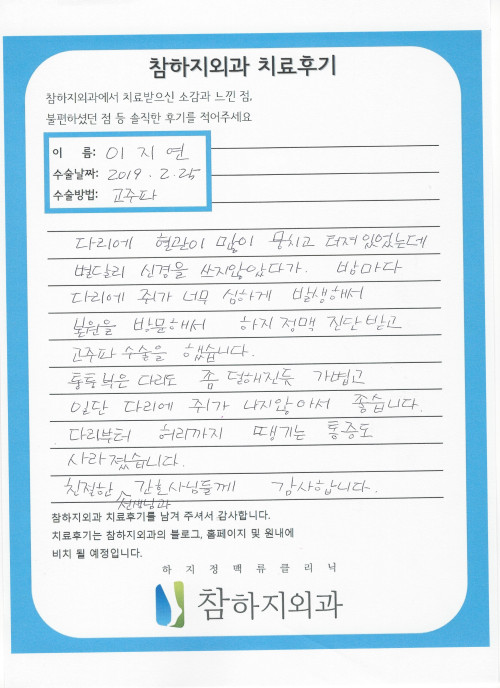 참하지외과 치료후기
참하지외과에서 치료받으신 소감과 느낀 점,
불편하셨던 점 등 솔직한 후기를 적어주세요
이 름: 이지연
수술날짜: 2019. 2. 25
수술방법: 고주파
다리에 혈관이 많이 뭉치고 터져있었는데
별달리 신경을 쓰지않았다가. 밤마다
다리에 쥐가 너무 심하게 발생해서
병원을 방문해서 하지정맥 진단받고
고주파 수술을 했습니다.
통통 부은 다리도 좀 덜해진듯 가볍고
일단 다리에 쥐가 나지않아서 좋습니다.
다리부터 허리까지 땡기는 통증도
사라졌습니다.
친절한 선생님과 간호사님들께 감사합니다.
참하지외과 치료후기를 남겨 주셔서 감사합니다.
치료후기는 참하지외과의 블로그, 홈페이지 및 원내에
비치 될 예정입니다.
하지정맥류클리닉
참하지외과